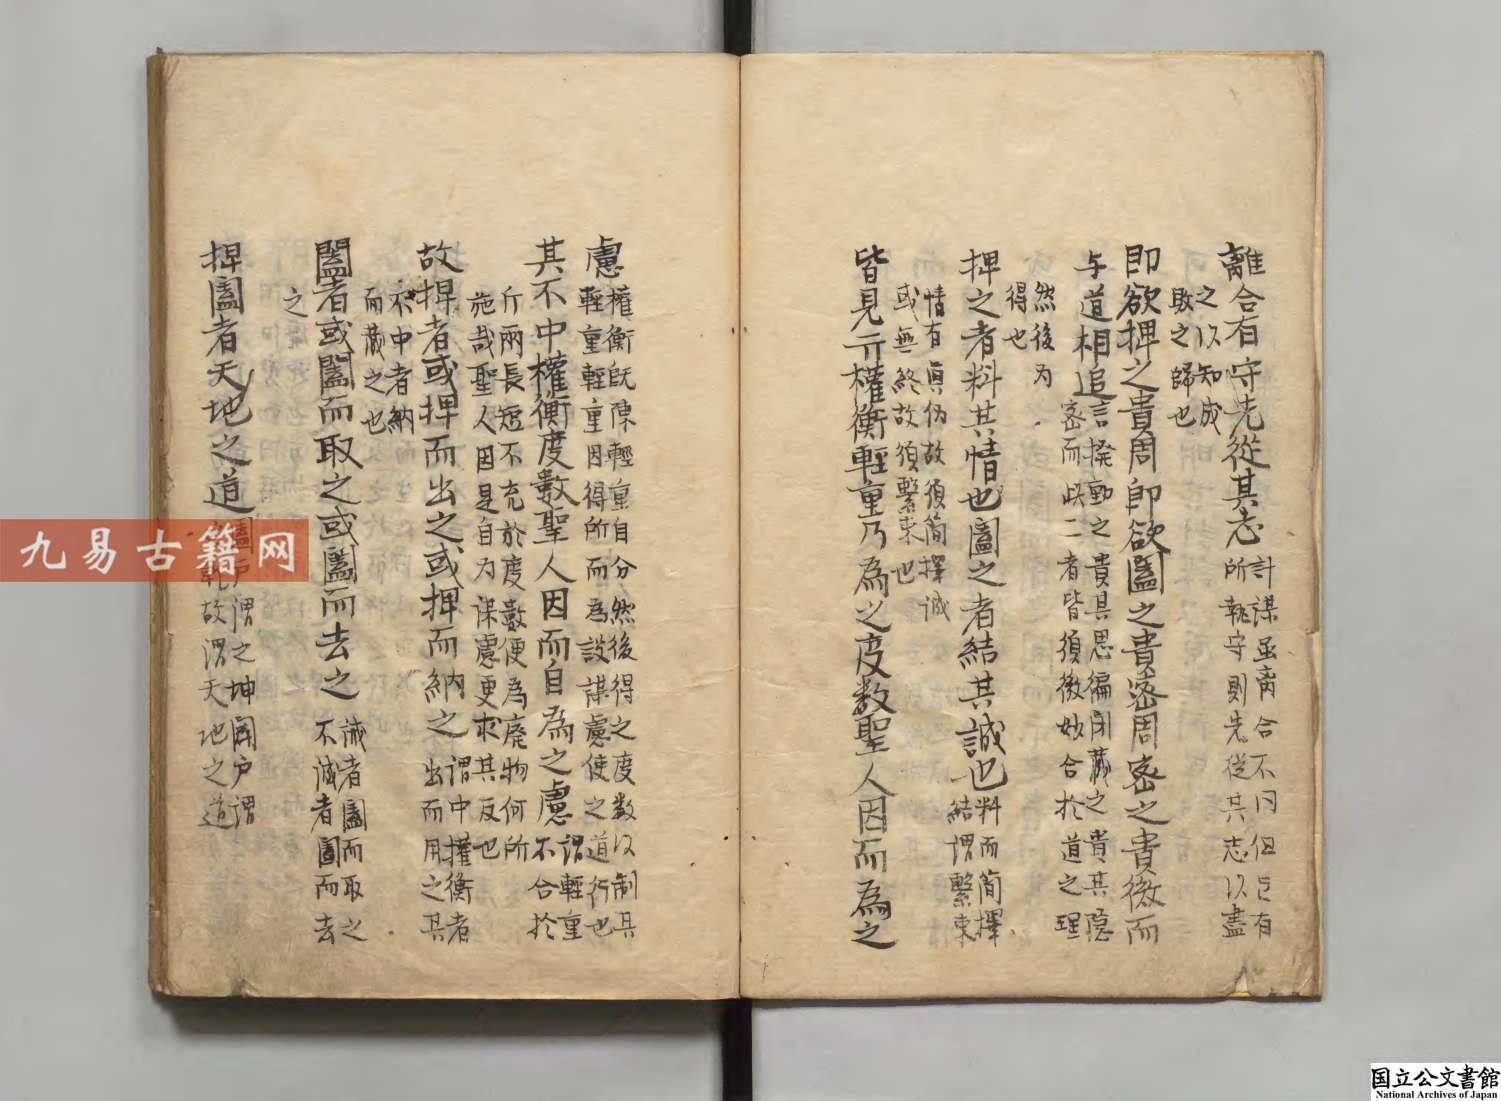 離合有守先從其志計謀虽离合不同但已有
所執守則先從其志以盡
之以知成
敗之歸也
即欲捭之貴周即欲闔之貴密周密之貴微而
与道相追言撥動之貴其思徧闭藏之貴其隐
密而此二者皆須微妙合於道之理
然後为
得也
捭之者料其情也闔之者結其誠也料而简擇
結謂繫束
情有真偽故須简擇誠
或無終故須繫束也
皆見亓權衡輕重乃為之度数聖人因而為之
慮權衡既陳輕重自分然後得之度数以制其
輕重輕重因得所而為設謀慮使之道行也
其不中權衡度數聖人因而自為之慮謂輕重
不合於
斤兩長短不充於度數便為廢物何所
施哉聖人因是自为謀慮更求其反也
故捭者或捭而出之或捭而納之謂中權衡者
出而用之其
不中者納
而藏之也
闔者或闔而取之或闔而去之誠者闔而取之
不誠者闔而去
之
捭闔者天地之道闔户謂之坤闢户謂
之乾故謂天地之道
九易古籍网
国立公文書館
National Archives of Japan